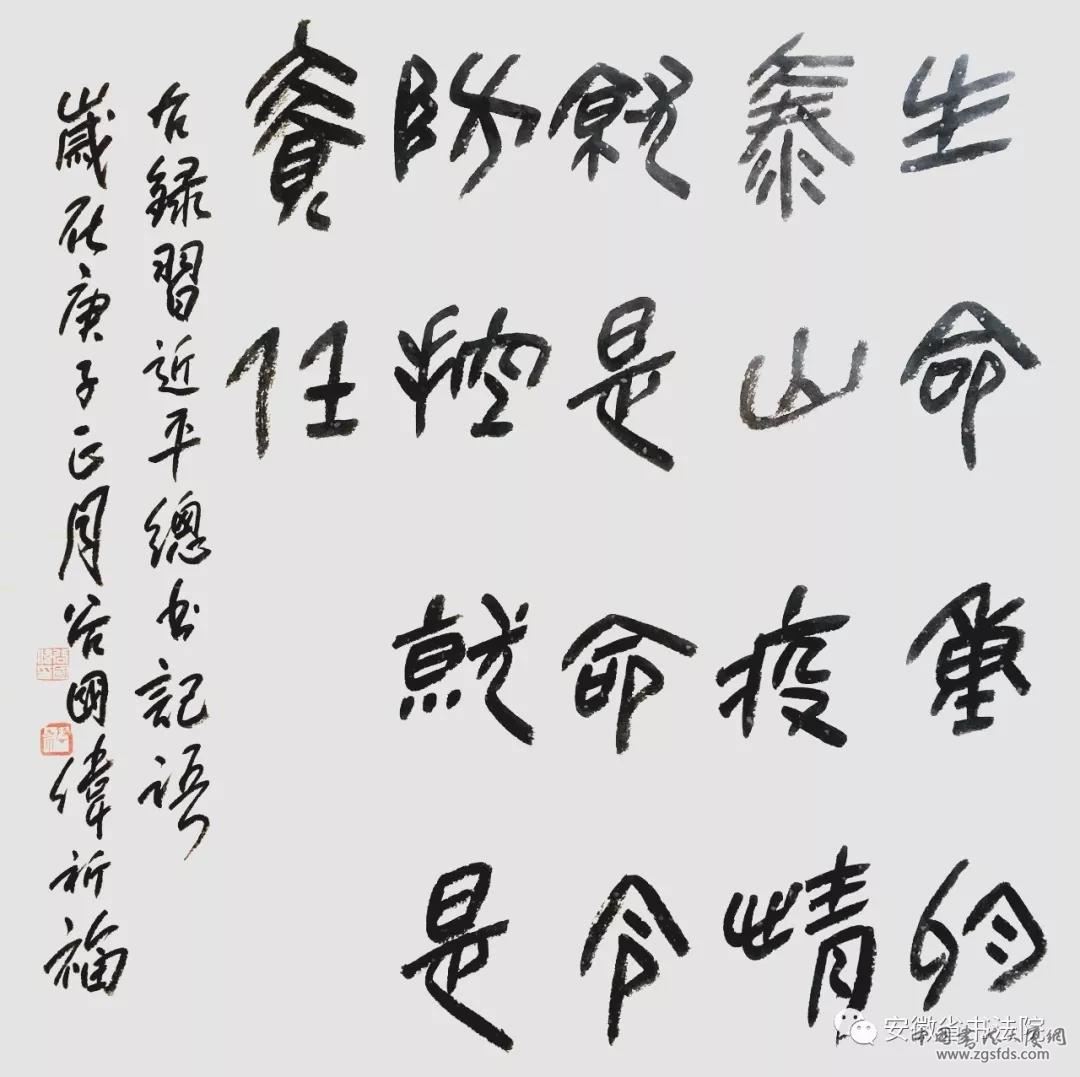 生命重於
泰山疫情
就是命令
防控就是
責任
右錄習近平總书記語
歲在庚子正月谷國偉祈福
安徽省书法院
中国書法大厦網
www.zgsfds.com